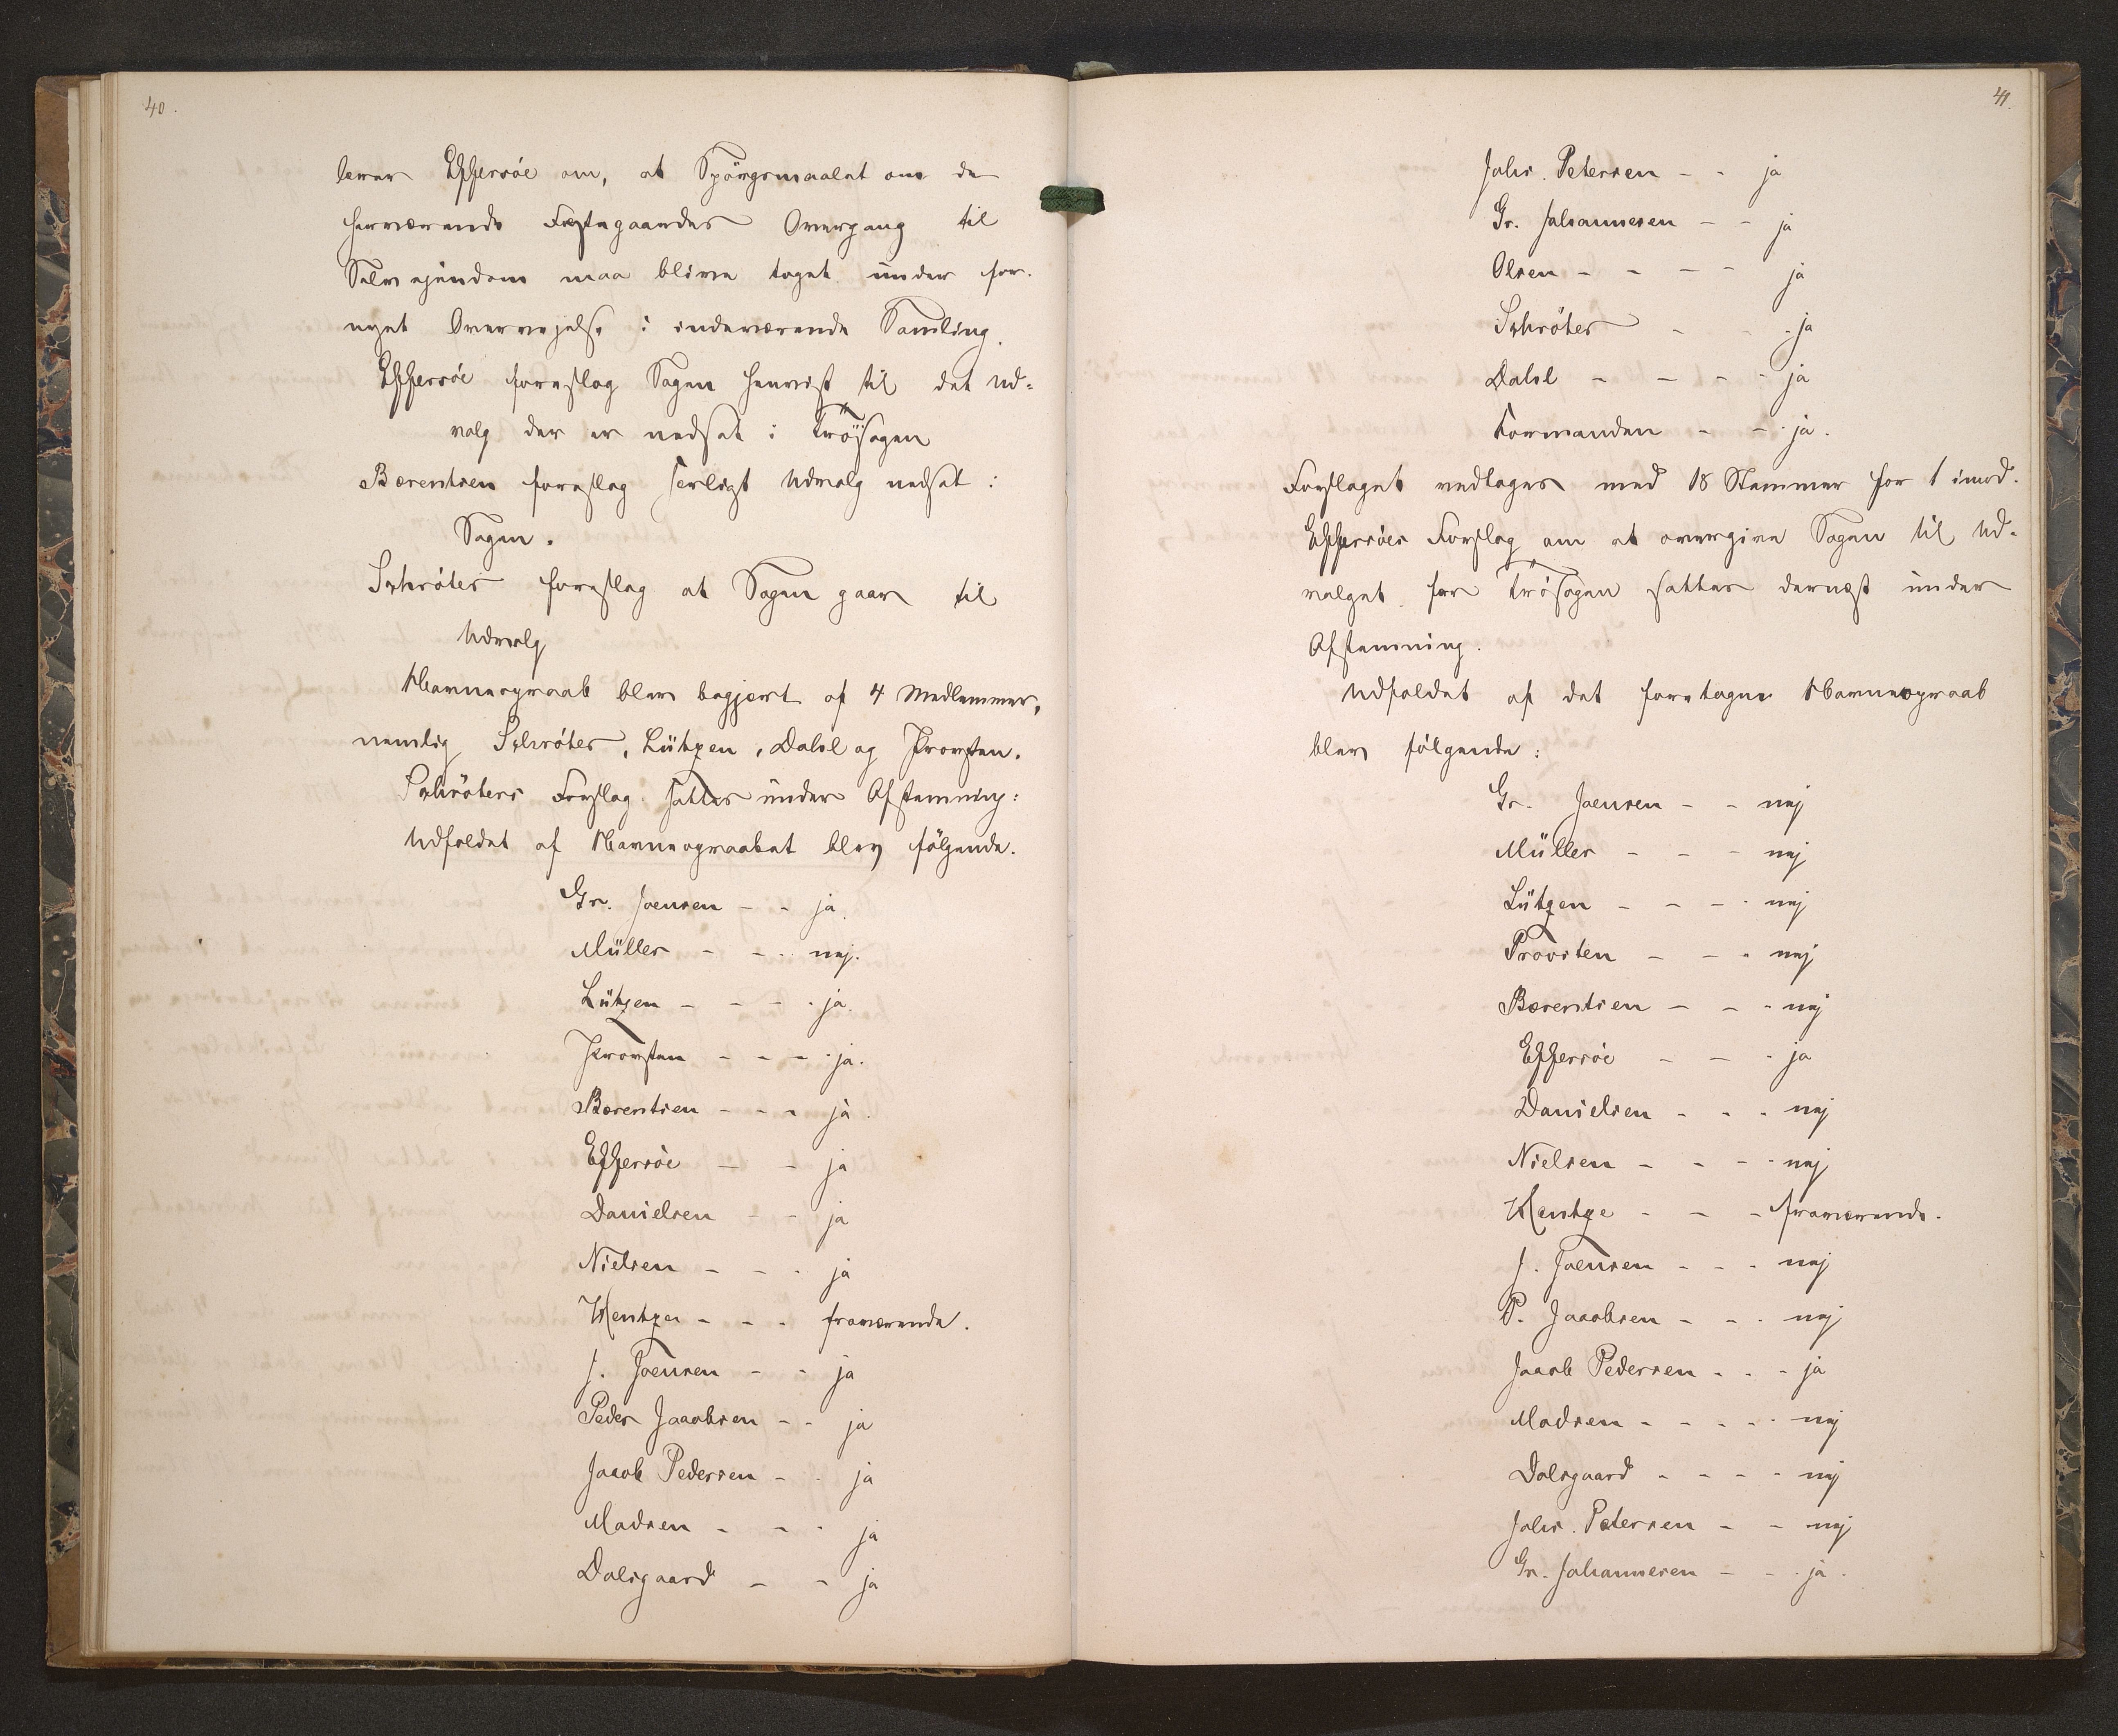 40.
lerer Effersöe om, at Spörgsmaalet om de
herværende Fæstegaardes Overgang til
Selvejendom maa blive taget under for-
nyet Overvejelse i indeværende Samling.
Effersöe foreslog Sagen henvist til det Ud-
valg der er nedsat i Tröisagen
Bærentsen foreslog særligt Udvalg nedsat i
Sagen.
Schröter foreslog at Sagen gaar til
Udvalg
Navneopraab blev begjært af 4 Medlemmer,
nemlig Schröter, Lützen, Dahl og Provsten.
Schröters Forslag sattes under Afstemning:
Udfaldet af Navneopraabet blev følgende.
Gr. Joensen - - ja.
Müller - - - nej.
Lützen - - - - ja.
Provsten - - - - ja.
Bærentsen - - - ja.
Effersöe - - ja
Danielsen - - ja
Nielsen - - - ja
Mentze - - - fraværende.
J. Joensen - - ja
Peder Jacobsen - - ja
Jacob Pedersen - - ja
Madsen - - - ja
Dalsgaard - - ja
41.
Johs. Petersen - - ja
Gr. Johannesen - - ja
Olsen - - - - ja
Schröter - - - ja
Dahl - - - - ja
Formanden - - - ja.
Forslaget vedtoges med 18 Stemmer for 1 imod.
Effersöes Forslag om at overgive Sagen til Ud-
valget for Tröisagen sattes dernæst under
Afstemning.
Udfaldet af det foretagne Navneopraab
blev følgende:
Gr. Joensen - - nej
Müller - - - nej
Lützen - - - - nej
Provsten - - - nej
Bærentsen - - - nej
Effersöe - - - ja
Danielsen - - - nej
Nielsen - - - - nej
Mentze - - - fraværende.
J. Joensen - - - nej
P. Jacobsen - - - nej
Jacob Pedersen - - - ja
Madsen - - - - - nej
Dalsgaard - - - - nej
Johs. Petersen - - nej
Gr. Johannesen - - - ja.